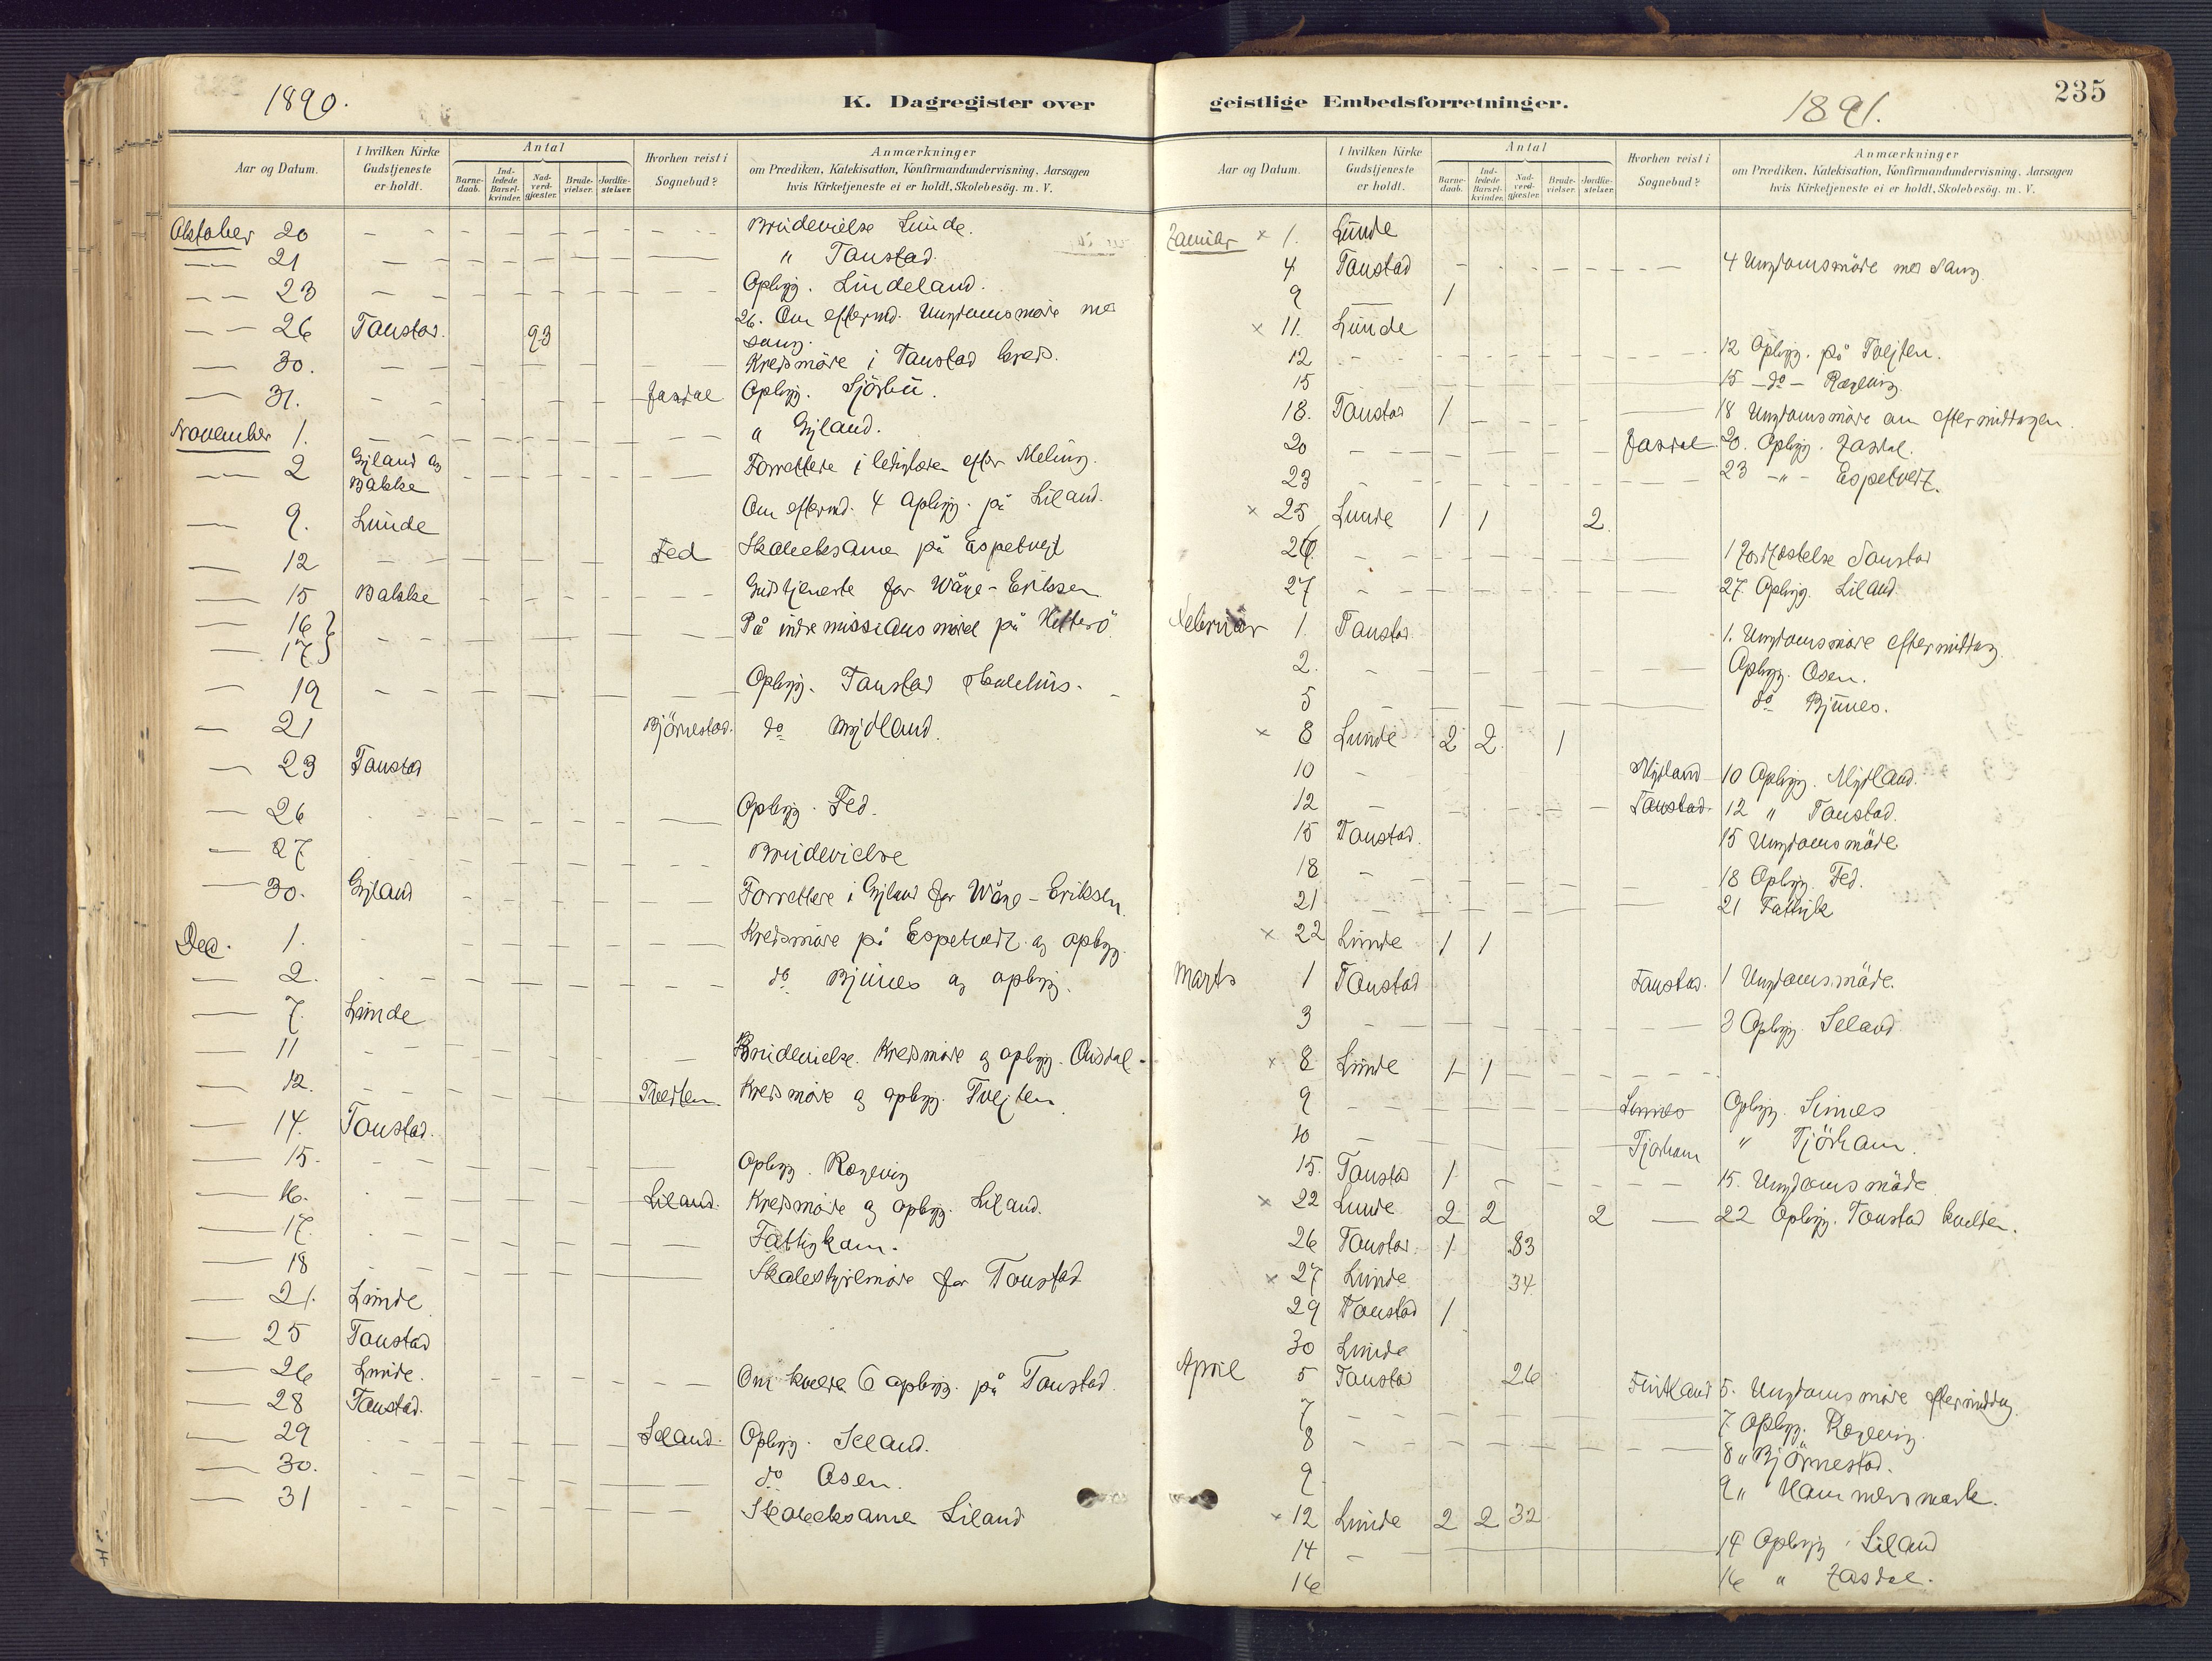 1890.
K. Dagregister over
Aar og Datum.
I hvilken Kirke Gudstjeneste er holdt.
Antal
Barnedaab.
Indledede Barselkvinder.
Nadverdgjæster.
Brudevielser.
Jordfæstelser.
Hvorhen reist i Sognebud?
Anmærkninger
om Prædiken, Katekisation, Konfirmandundervisning, Aarsagen
hvis Kirketjeneste ei er holdt, Skolebesög. m. V.
Oktober 20 Brüdevielse Lunde.
21 " Tonstad
23 Opbygg. Lindeland.
26 Tonstad. 93 26. Om eftermd. Ungdomsmøde med
sang.
30. Kredsmøde i Tonstad kreds.
31. Josdal Opbygg. Sjörbü.
November 1. " Gyland.
2 Gyland og Forrettede i ledigheden efter Meling.
Bakke
9. Lunde Om eftermd. 4 opbygg. på Liland.
12 Fed Skoleeksamen på Espetvejt
15 Bakke Gudstjeneste for Wåge-Eriksen
16 } På indremissionsmødet på Hitterö.
17 }
19 Opbygg. Tonstad skolehüs.
21 Björnestad. do Mydland.
23 Tonstad
26 Opbygg. Fed.
27 Brüdevielse
30. Gyland Forrettede i Gyland for Wåge-Eriksen
Dec. 1. Kredsmøde på Espetvedt og opbygg.
2. do Bjünes og opbygg.
7. Lunde
11 Brüdevielse. Kredsmøde og opbygg. Ousdal
12. Tveiten Kredsmøde og opbygg. Tvejten
14. Tonstad.
15. Opbygg. Rægevig
16. Liland. Kredsmøde og opbygg. Liland.
17. Fattigkom.
18 Skolestyremøde for Tonstad
21. Lunde
25 Tonstad
26 Lunde. Om kvelden 6 opbygg. på Tonstad.
28 Tonstad.
29 Seland. Opbygg. Seland.
30. do Osen.
31 Skoleeksamen Liland
geistlige Embedsforretninger.
1891.
235
Aar og Datum.
I hvilken Kirke Gudstjeneste er holdt.
Antal
Barnedaab.
Indledede Barselkvinder.
Nadverdgjæster.
Brudevielser.
Jordfæstelser.
Hvorhen reist i Sognebud?
Anmærkninger
om Prædiken, Katekisation, Konfirmandundervisning, Aarsagen
hvis Kirketjeneste ei er holdt, Skolebesög. m. V.
Januar x 1. Lunde
4 Tonstad 4 Ungdomsmöde med sang.
9 1
x 11. Lunde
12 12 Opbygg. på Tvejten.
15 15 -do- Rægevig.
18. Tonstad 1 18 Ungdomsmöde om eftermiddagen.
20 Josdal 20. Opbygg. Josdal.
23 23 -"- Espetvedt.
x 25 Lunde 1 1 2
26 1 Jordfæstelse Tonstad
27 27. Opbygg. Liland
Februar 1. Tonstad 1. Ungdomsmöde eftermiddag
2. Opbygg. Osen.
5 do Bjünes.
x 8 Lunde 2 2 1
10 Mydland 10 Opbygg. Mydland.
12 Tonstad. 12 " Tonstad.
15 Tonstad. 15 Ungdomsmöde
18 18 Opbygg. Fed.
21 21 Fattigk
x 22 Lunde 1 1
Marts 1 Tonstad Tonstad. 1 Ungdomsmöde.
3 3 Opbygg. Seland
x 8 Lunde 1 1
9 Sinnes Opbygg. Sinnes
10 Tjorham " Tjörham.
15. Tonstad 1 15. Ungdomsmöde
x 22 Lunde 2 2 2 22 Opbygg. Tonstad kvelden.
26 Tonstad. 1 83
x 27 Lunde 34
29 Tonstad 1
30 Lunde
April 5 Tonstad 26 Fintland 5. Ungdomsmöde eftermiddag.
7 7 Opbygg. Rægevig
8 8 " Björnestad.
9 9 " Hammersmark.
x 12 Lunde 2 2 32
14 14 Opbygg. Liland
16 16 " Josdal.